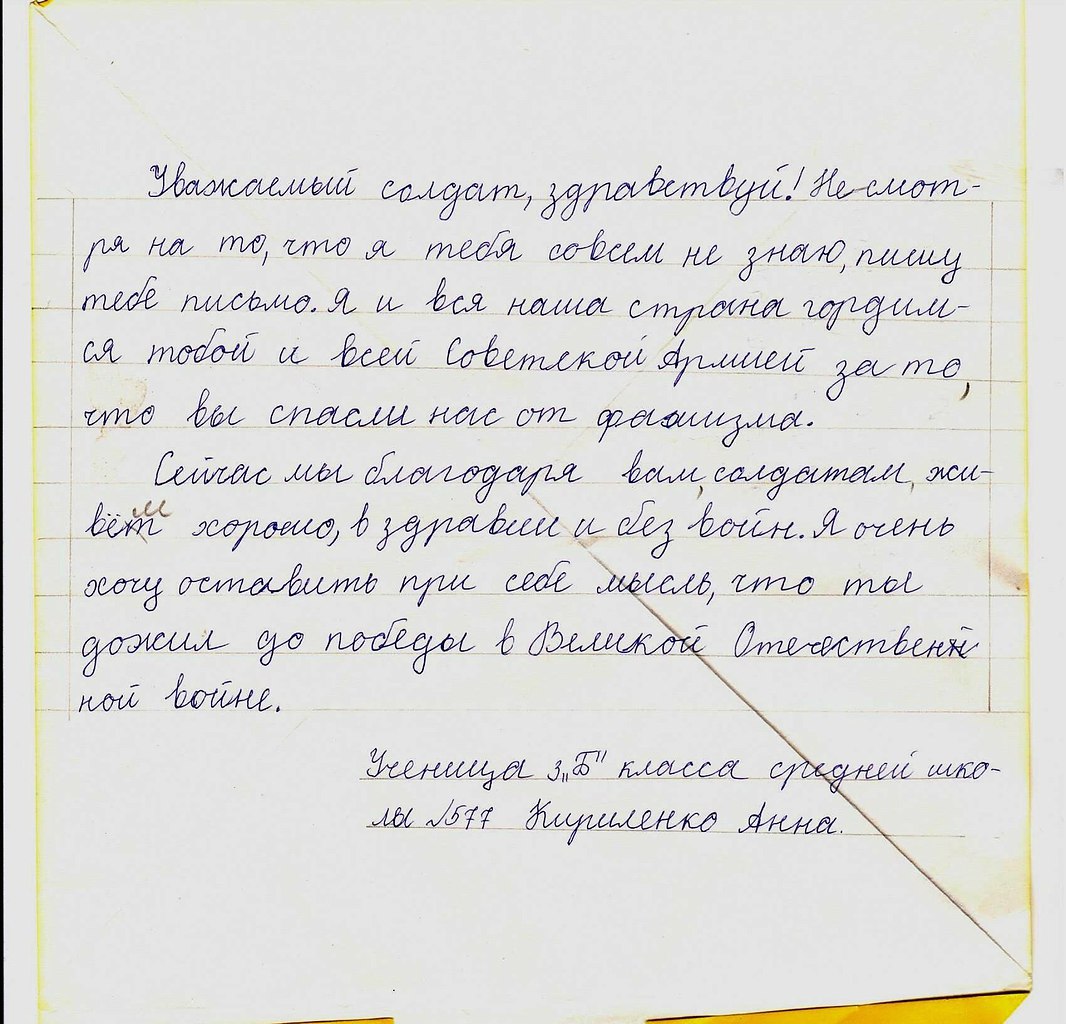 Уважаемый солдат, здравствуй! Не смот-
ря на то, что я тебя совсем не знаю, пишу
тебе письмо. Я и вся наша страна гордим-
ся тобой и всей Советской Армией за то,
что вы спасли нас от фашизма.
Сейчас мы благодаря вам, солдатам, жи-
вём хорошо, в здравии и без войн. Я очень
хочу оставить при себе мысль, что ты
дожил до победы в Великой Отечествен-
ной войне.
Ученица 3„Б" класса средней шко-
лы №577 Кириленко Анна.